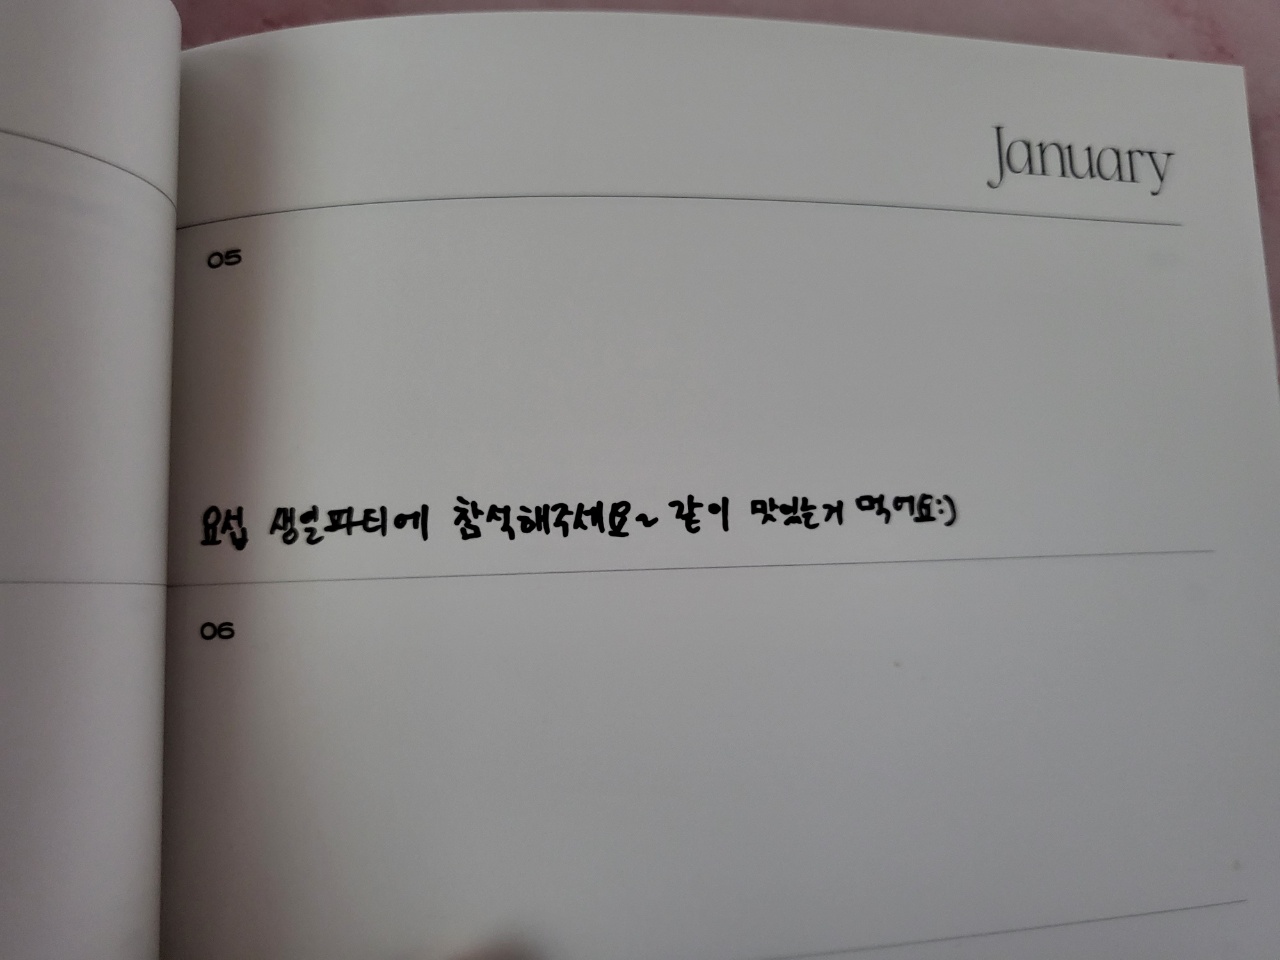 January
05
요섭 생일파티에 참석해주세요~ 같이 맛있는거 먹어요:)
06